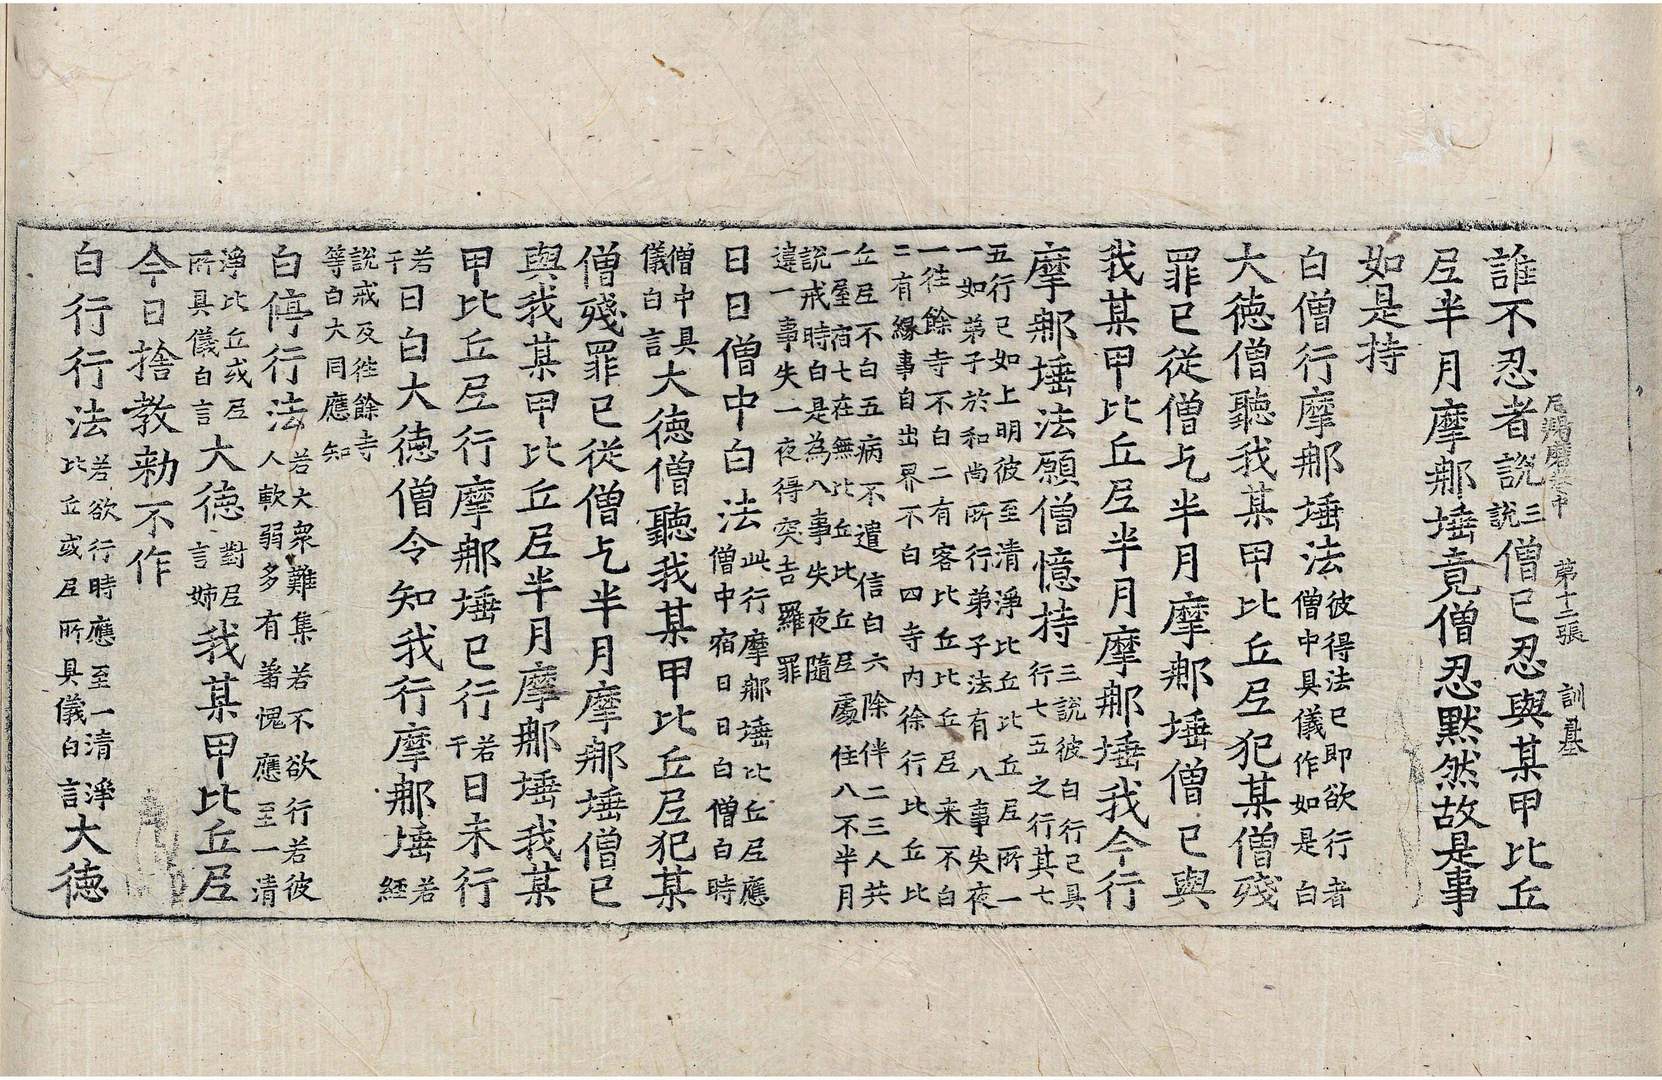 尼羯磨卷中 第十二張 訓基
誰不忍者說三說僧已忍與某甲比丘
尼半月摩那埵竟僧忍默然故是事
如是持
白僧行摩那埵法彼得法已即欲行者僧中具儀作如是白
大德僧聽我某甲比丘尼犯某僧殘
罪已從僧乞半月摩那埵僧已與
我某甲比丘尼半月摩那埵我今行
摩那埵法願僧憶持三說彼白行已具行七五之行其七
五行已如上明彼至清淨比丘比丘尼所一
一如弟子於和尚所行弟子法有八事失夜
一往餘寺不白二有客比丘比丘尼來不白
二有緣事自出界不白四寺內徐行比丘比
丘尼不白五病不遣信白六除伴二三人共
一屋宿七在無比丘比丘尼處住八不半月
說戒時白是為八事失夜隨
違一事失一夜得突吉羅罪
日日僧中白法此行摩那埵比丘尼應僧中宿日日白僧白時
僧中具儀白言大德僧聽我某甲比丘尼犯某
僧殘罪已從僧乞半月摩那埵僧已
與我某甲比丘尼半月摩那埵我某
甲比丘尼行摩那埵已行若干日未行
若干日白大德僧令知我行摩那埵若經
說戒及往餘寺
等白大同應知
白停行法若大眾難集若不欲行若彼人軟弱多有著愧應至一清
淨比丘或尼所具儀白言大德對尼言姊我某甲比丘尼
今日捨教勅不作
白行行法若欲行時應至一清淨比丘或尼所具儀白言大德